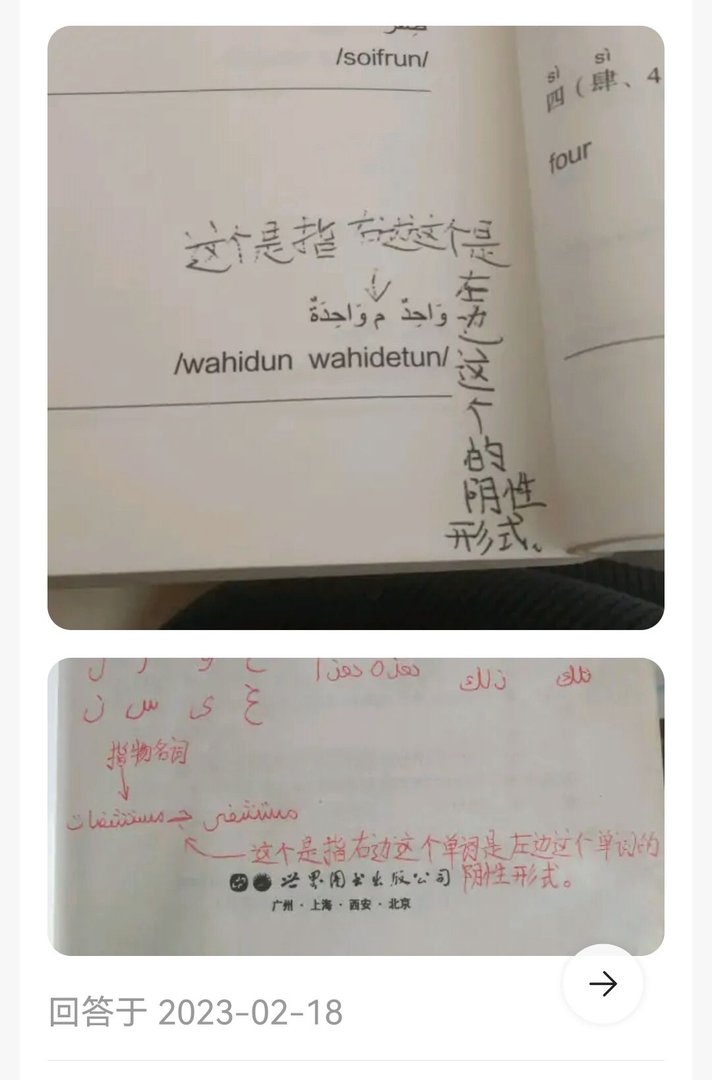 /soifrun/
sì sì
四（肆、4
four
这个是指 右边这个是
左边这个的阴性形式。
وَاحِدٌ م وَاحِدَةٌ
/wahidun wahidetun/
ذلك تلك
指物名词
مستشفى جـ مستشفات
这个是指右边这个单词是左边这个单词的
阴性形式。
世界图书出版公司
广州·上海·西安·北京
回答于 2023-02-18